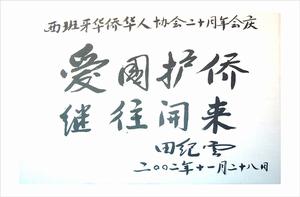 西班牙华侨华人协会二十周年会庆
爱國护侨
继往开来
田纪雲
二〇〇二年十一月二十八日